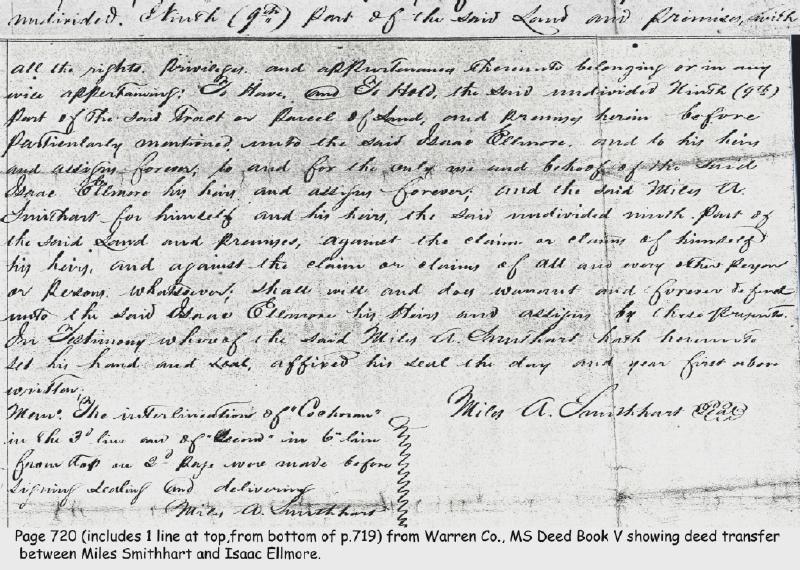 undivided. Ninth (9th) Part of the said Land and Premises, with
all the rights. Privileges. and appurtenances thereunto belonging or in any
wise appertaining: To Have, and To Hold, the said undivided Ninth (9th)
Part of the said Tract or Parcel of Land, and premises herein before
Particularly mentioned, unto the said Isaac Ellmore. and to his heirs
and assigns forever, to and for the only use and behoof of the said
Isaac Ellmore his heirs and assigns forever; and the said Miles A.
Smithhart for himself and his heirs, the said undivided ninth Part of
the said Land and Premises, against the claim or claims of himself
his heirs, and against the claim or claims of all and every other Person
or Persons whatsoever, shall will and does warrant and forever defend
unto the said Isaac Ellmore his Heirs and assigns by these Presents.
In Testimony whereof the said Miles A. Smithhart hath hereunto
set his hand and seal, affixed his seal the day and year first above
written.
Memo. The interlineations of "Cochran"
in the 3d line and of "Second" in 6th line
from top on 2d page were made before
signing sealing and delivering
Miles A. Smithhart
Miles A. Smithhart Seal
Page 720 (includes 1 line at top,from bottom of p.719) from Warren Co., MS Deed Book V showing deed transfer
between Miles Smithhart and Isaac Ellmore.